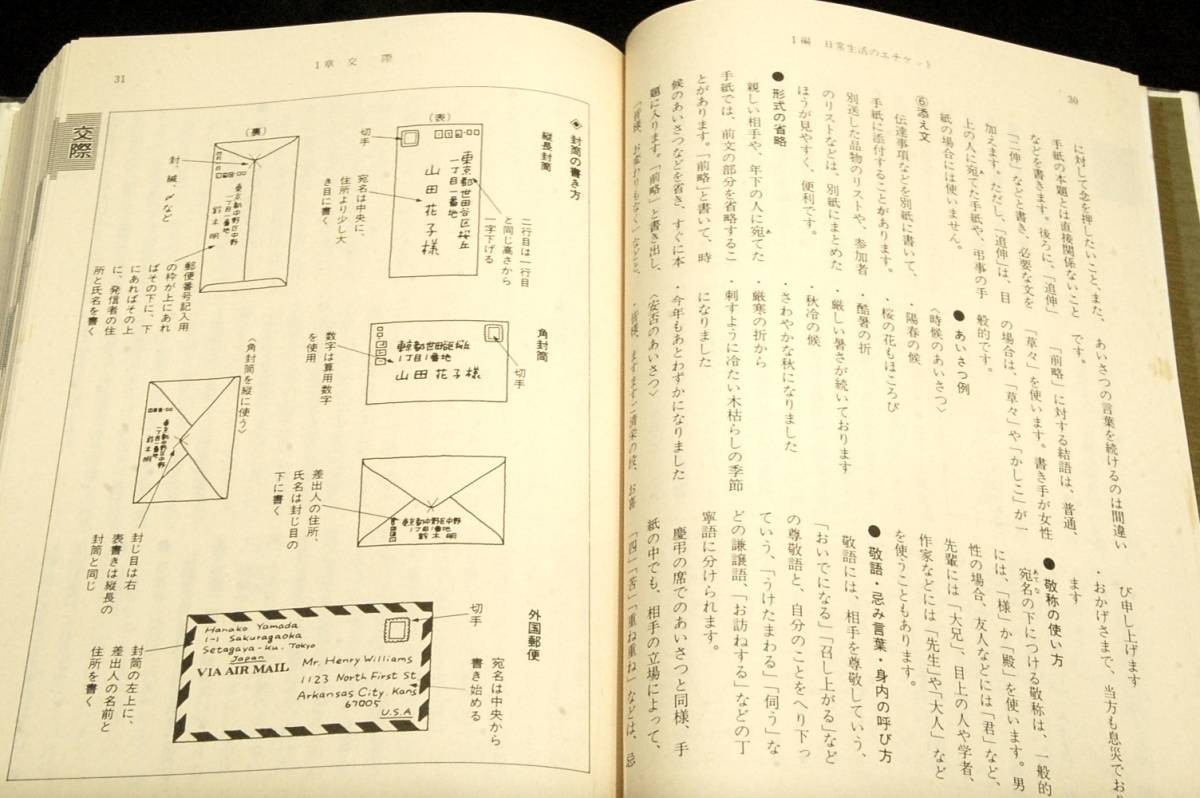 1編 日常生活のエチケット
30
に対して念を押したいこと、また、
手紙の本題とは直接関係ないこと
などを書きます。後ろに、「追伸」
「二伸」などと書き、必要な文を
加えます。ただし、「追伸」は、目
上の人に宛てた手紙や、弔事の手
紙の場合には使いません。
⑥添え文
伝達事項などを別紙に書いて、
手紙に添付することがあります。
別送した品物のリストや、参加者
のリストなどは、別紙にまとめた
ほうが見やすく、便利です。
● 形式の省略
親しい相手や、年下の人に宛てた
手紙では、前文の部分を省略するこ
とがあります。「前略」と書いて、時
候のあいさつなどを省き、すぐに本
題に入ります。「前略」と書き出し、
「皆様、お変わりもなく」などと、
あいさつの言葉を続けるのは間違い
です。
「前略」に対する結語は、普通、
「草々」を使います。書き手が女性
の場合は、「草々」や「かしこ」が一
般的です。
● あいさつ例
〈時候のあいさつ〉
・陽春の候
・桜の花もほころび
・酷暑の折
・厳しい暑さが続いております
・秋冷の候
・さわやかな秋になりました
・厳寒の折から
・刺すように冷たい木枯らしの季節
になりました
・今年もあとわずかになりました
〈安否のあいさつ〉
・皆様、ますますご清栄の段、お喜
び申し上げます
・おかげさまで、当方も息災でおり
ます
● 敬称の使い方
宛名の下につける敬称は、一般的
には、「様」か「殿」を使います。男
性の場合、友人などには「君」など、
先輩には「大兄」、目上の人や学者、
作家などには「先生」や「大人」など
を使うこともあります。
● 敬語・忌み言葉・身内の呼び方
敬語には、相手を尊敬していう、
「おいでになる」「召し上がる」など
の尊敬語と、自分のことをへり下っ
ていう、「うけたまわる」「伺う」な
どの謙譲語、「お訪ねする」などの丁
寧語に分けられます。
慶弔の席でのあいさつと同様、手
紙の中でも、相手の立場によって、
「四」「苦」「重ね重ね」などは、忌
31
1章 交際
交際
封筒の書き方
縦長封筒
(表)
切手
東京都世田谷区桜丘
一丁目一番地
山田花子様
二行目は一行目
と同じ高さから
一字下げる
宛名は中央に、
住所より少し大
き目に書く
(裏)
東京都中野区中野
一丁目一番地
鈴木明
封、緘、〆など
郵便番号記入用
の枠が上にあれ
ばその下に、下
にあればその上
に、発信者の住
所と氏名を書く
角封筒
切手
1丁目1番地
山田花子様
数字は算用数字
を使用
東京都中野区中野
1丁目1番地
鈴木明
差出人の住所、
氏名は封じ目の
下に書く
〈角封筒を縦に使う〉
東京都中野区中野
一丁目一番地
鈴木明
封じ目は右
表書きは縦長の
封筒と同じ
外国郵便
切手
Hanako Yamada
1-1 Sakuragaoka
Setagaya-ku, Tokyo
Japan
VIA AIR MAIL
Mr. Henry Williams
1123 North First St
Arkansas City. Kans
67005
U.S.A
宛名は中央から
書き始める
封筒の左上に、
差出人の名前と
住所を書く